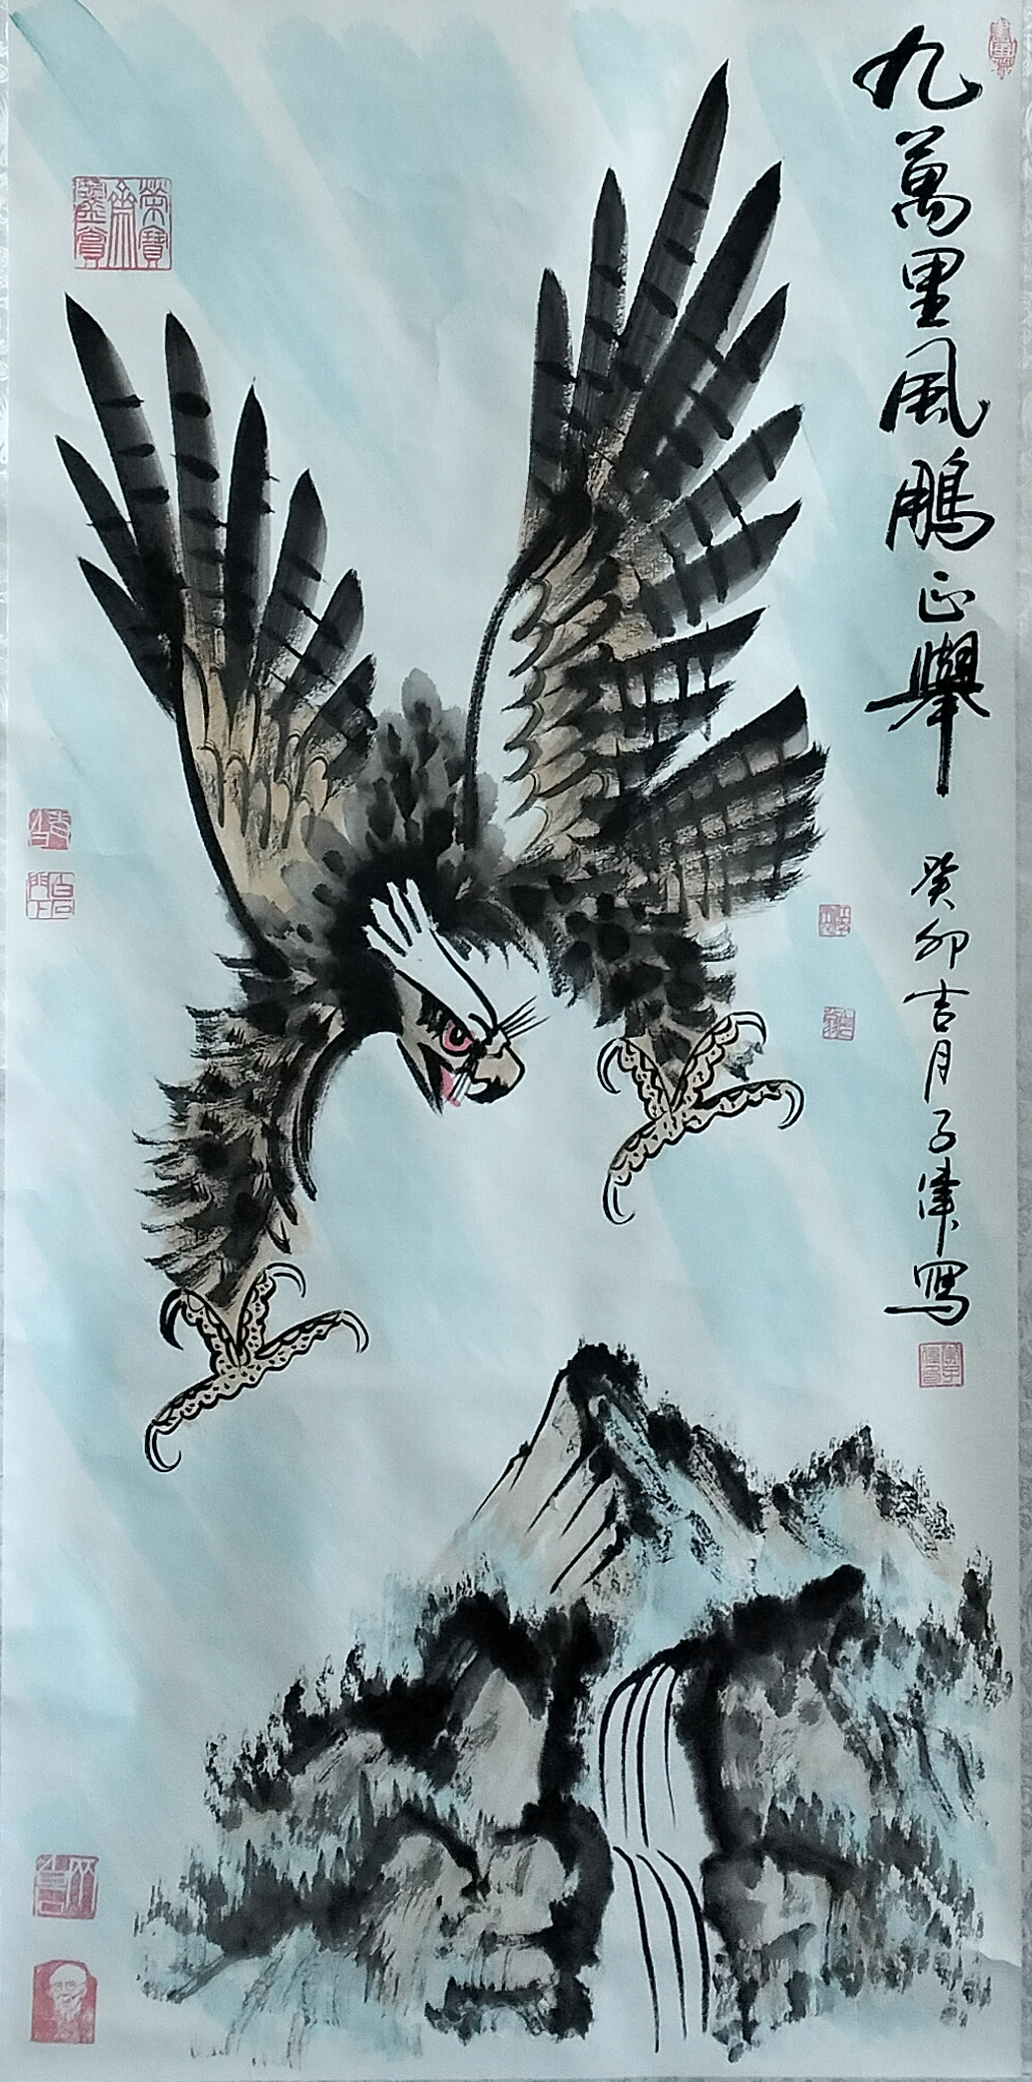 九萬里風鵬正舉
癸卯吉月子偉寫
榮寶
齋
鑒賞